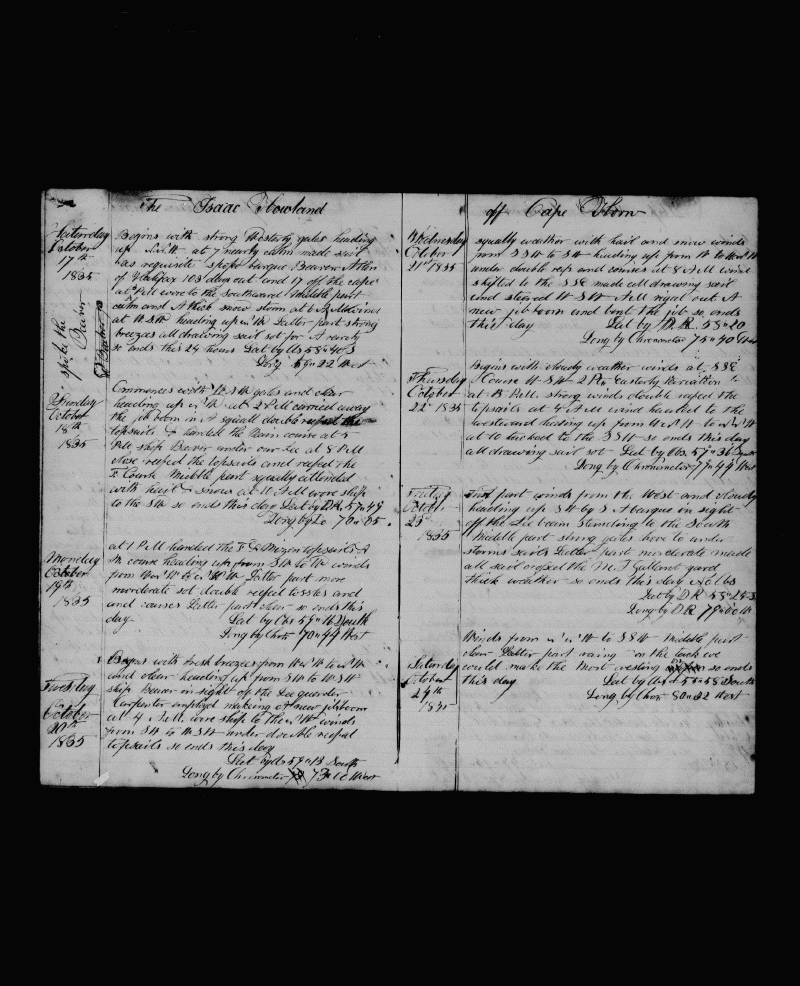 The Isaac Howland
Saturday
October
17th
1835
spoke the
Beaver
Begins with strong Westerly gales heading
up N.W. at 7 nearly calm made sail
as requisite spoke barque Beaver Allen
of Halifax 103 days out and 17 off the cape
at PM wore to the Southward Middle part
calm and A thick snow storm at 6 AM winds
at W.S.W. heading up Latter part strong
breezes all drawing sail set for A rarity
so ends this 24 hours Lat by Obs 58"40 S
Long 69"22 West
Sunday
October
18th
1835
Commences with W.S.W. gales and clear
heading up at 2 PM carried away
the jib boom in A squall double reefed the
topsails & handed the Main course at 5
PM ship Beaver under our Lee at 8 PM
close reefed the topsails and reefed the
F Course Middle part squally attended
with hail & snow at 11 AM wore ship
to the SW so ends this day Lat by DR 57"49
Long by Do 70"05
Monday
October
19th
1835
at 1 PM handed the F & Mizen topsails &
M course heading up from SW to W winds
from to Latter part more
moderate set double reefed topsls and
and courses Latter part clear so ends this
day Lat by Obs 59"16 South
Long by Chro 70"44 West
Tuesday
October
20th
1835
Begins with fresh breezes from to
and clear heading up from SW to W.SW
ship Beaver in sight off the Lee quarder
Carpenter employed making A new jib boom
at 4 AM wore ship to the winds
from SW to W.SW under double reefed
topsails so ends this day
Lat by Obs 59"13 South
Long by Chronometer 73"10 West
off Cape Horn
Wednesday
October
21st 1835
squally weather with hail and snow winds
from S SW to SW heading up from W to
under double reefs and courses at 8 AM wind
shifted to the SSE made all drawing sail
and steered W SW AM riged out A
new jib boom and bent the jib so ends
this day Lat by D.R. 58"20
Long by Chronometer 75"40 West
Thursday
October
22d 1835
Begins with cloudy weather winds at SSE
Course W SW 2 Pts Easterly Variation
at PM strong winds double reefed the
topsails at 4 AM wind hauled to the
westward heading up from to
at 10 tacked to the SSW so ends this day
all drawing sail set Lat by Obs 57"36 South
Long by Chronometer 77"49 West
Friday
October
23d
1835
First part winds from the West and cloudy
heading up SW by S A barque in sight
off the Lee beam standing to the South
Middle part strong gales hove to under
storm sails Latter part moderate made
all sail crossed the M T Gallant yard
thick weather so ends this day No Obs
Lat by DR 58"25 S
Long by DR 79"00 W
Saturday
October
24th
1835
Winds from to SSW Middle part
clear Latter part raing on the tack we
could make the most westing so ends
this day Lat by Obs 55"58 South
Long by Chro 80"22 West